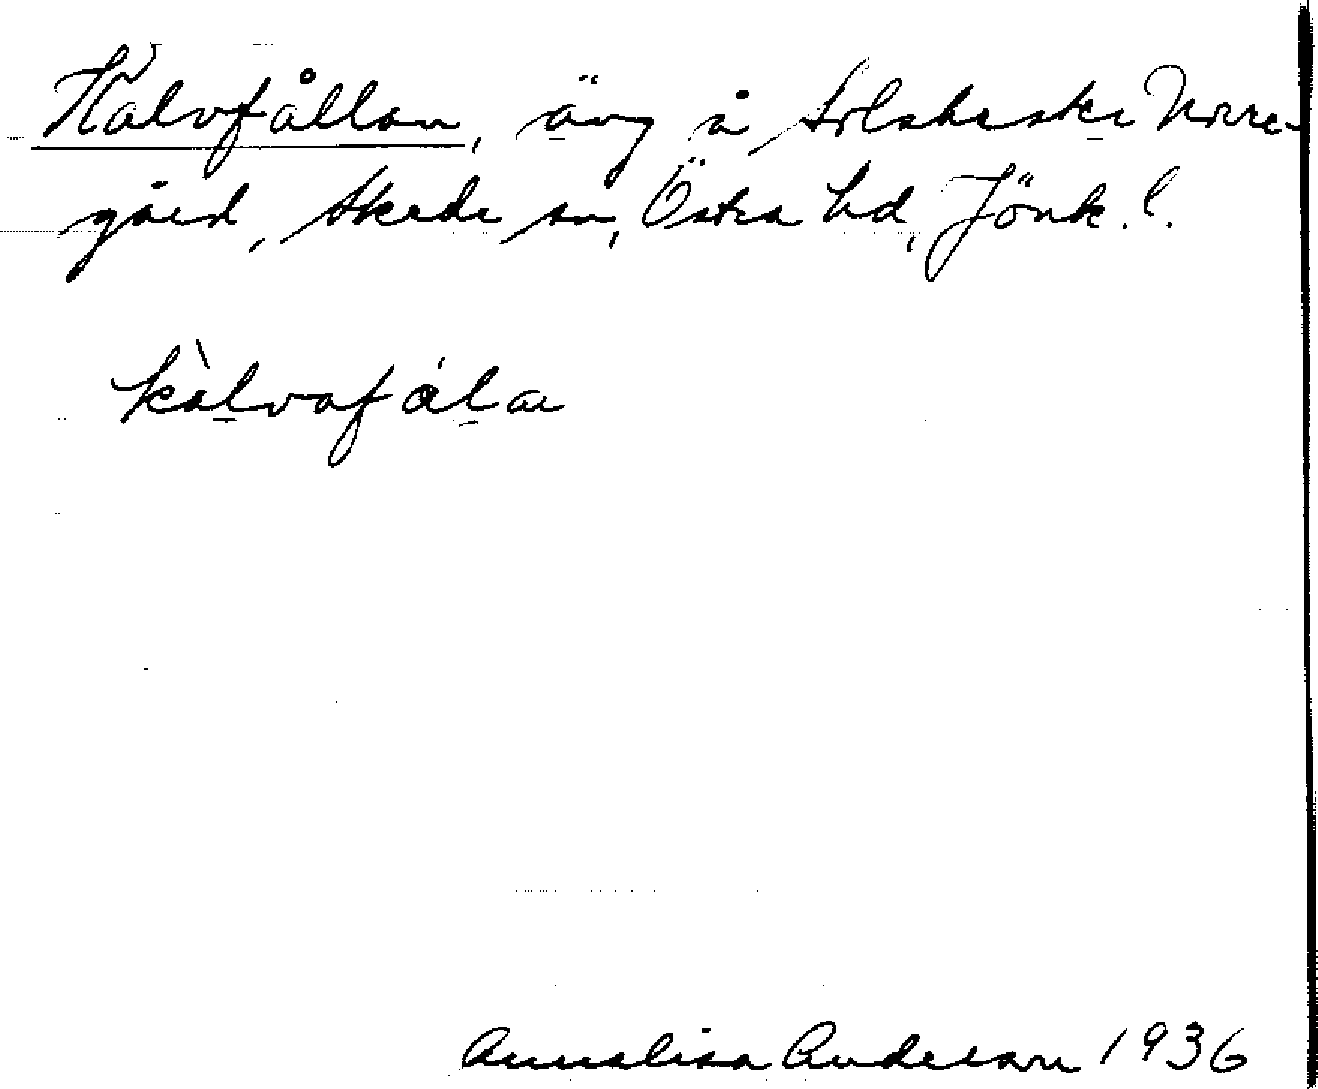 Kalvfållan, äng å Solaberske Norre-
gård, Skede sn, Östra hd, Jönk. l.
kàlvafála
Annalisa Anderson 1936